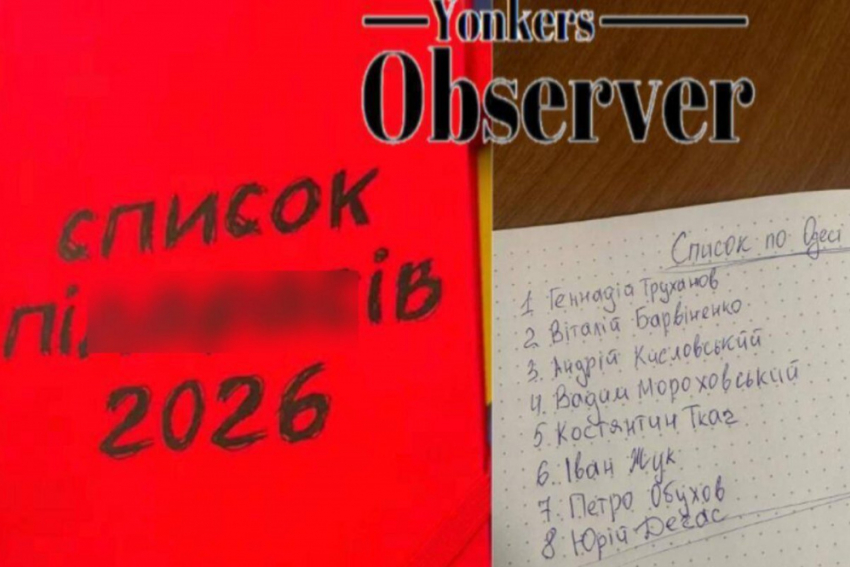 Yonkers
Observer
список
пі ів
2026
Список по Одесі
1 Геннадій Труханов
2 Віталій Барвіненко
3. Андрій Кисловський
4. Вадим Мороховський
5 Костянтин Ткач
6 Іван Жук
7 Петро Обухов
8 Юрій Дегас